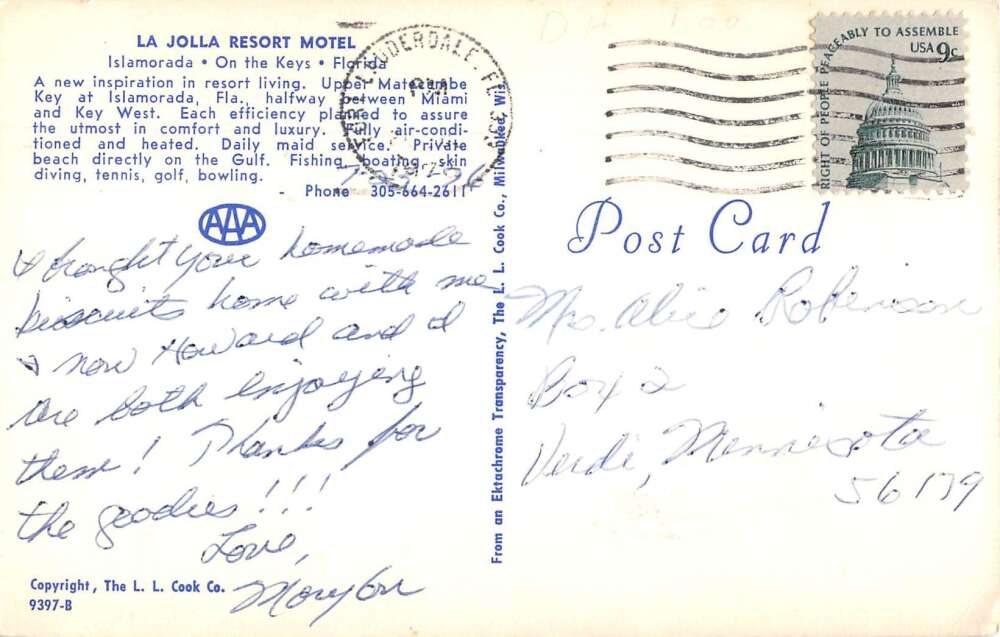 LA JOLLA RESORT MOTEL
Islamorada • On the Keys • Florida
A new inspiration in resort living. Upper Matecumbe
Key at Islamorada, Fla., halfway between Miami
and Key West. Each efficiency planned to assure
the utmost in comfort and luxury. Fully air-condi-
tioned and heated. Daily maid service. Private
beach directly on the Gulf. Fishing, boating, skin
diving, tennis, golf, bowling.
- Phone 305-664-2611
AAA
I brought your homemade
biscuits home with me
& now Howard and I
are both enjoying
them! Thanks for
the goodies!!!
Love,
Copyright, The L. L. Cook Co.
9397-B
From an Ektachrome Transparency, The L. L. Cook Co., Milwaukee, Wis.
FORT LAUDERDALE, FL
PM
RIGHT OF PEOPLE PEACEABLY TO ASSEMBLE
USA 9c
Post Card
Mrs. Alice Robinson
Box 2
Verdi, Minnesota
56179